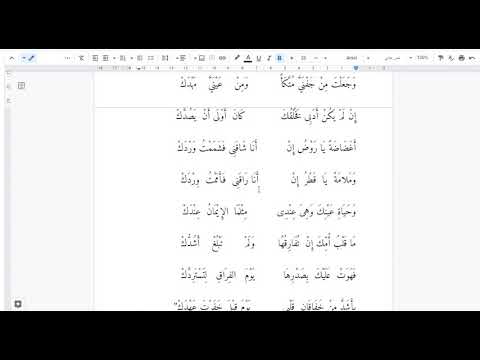 وَجَعَلْتَ مِنْ جَفْنَيَّ مُتَّكَأً وَمِنْ عَيْنَيَّ مَهْدَكْ
إِنْ لَمْ يَكُنْ أَدَبِى فَخُلْقُكَ كَانَ أَوْلَى أَنْ يَصُدَّكْ
أَغَضَاضَةً يَا رَوْضُ إِنْ أَنَا شَاقَنِى فَشَمَمْتُ وَرْدَكْ
وَمَلَامَةً يَا قَطْرُ إِنْ أَنَا رَاقَنِى فَأَمَمْتُ وِرْدَكْ
وَحَيَاةِ عَيْنِكَ وَهِىَ عِنْدِى مِثْلَمَا الإِيْمَانُ عِنْدَكْ
مَا قَلْبُ أُمِّكَ إِنْ تُفَارِقْهَا وَلَمْ تَبْلُغْ أَشُدَّكْ
فَهَوَتْ عَلَيْكَ بِصَدْرِهَا يَوْمَ الفِرَاقِ لِتَسْتَرِدَّكْ
بِأَشَدَّ مِنْ خَفَقَانِ قَلْبِى يَوْمَ قِيْلَ خَفَرْتَ عَهْدَكْ"